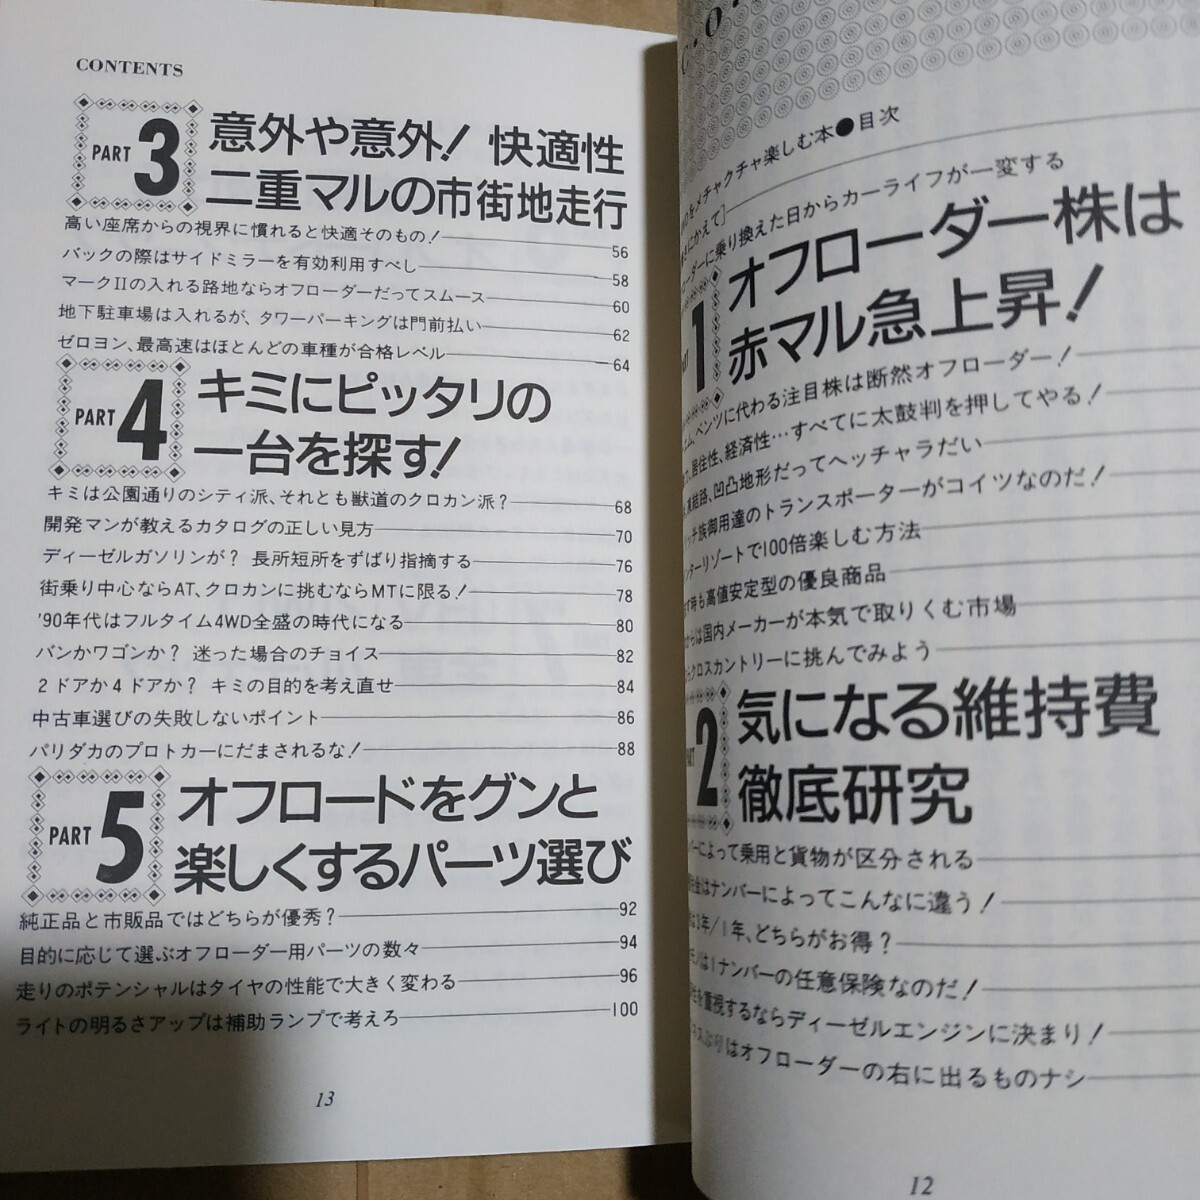 CONTENTS
PART 3
意外や意外! 快適性
二重マルの市街地走行
高い座席からの視界に慣れると快適そのもの! 56
バックの際はサイドミラーを有効利用すべし 58
マークIIの入れる路地ならオフローダーだってスムース 60
地下駐車場は入れるが、タワーパーキングは門前払い 62
ゼロヨン、最高速はほとんどの車種が合格レベル 64
PART 4
キミにピッタリの
一台を探す!
キミは公園通りのシティ派、それとも獣道のクロカン派? 68
開発マンが教えるカタログの正しい見方 70
ディーゼルガソリンが? 長所短所をずばり指摘する 76
街乗り中心ならAT、クロカンに挑むならMTに限る! 78
'90年代はフルタイム4WD全盛の時代になる 80
バンかワゴンか? 迷った場合のチョイス 82
2ドアか4ドアか? キミの目的を考え直せ 84
中古車選びの失敗しないポイント 86
パリダカのプロトカーにだまされるな! 88
PART 5
オフロードをグンと
楽しくするパーツ選び
純正品と市販品ではどちらが優秀? 92
目的に応じて選ぶオフローダー用パーツの数々 94
走りのポテンシャルはタイヤの性能で大きく変わる 96
ライトの明るさアップは補助ランプで考えろ 100
13
C・O・
をメチャクチャ楽しむ本●目次
にかえて]
ーダーに乗り換えた日からカーライフが一変する
1
オフローダー株は
赤マル急上昇!
ベンツに代わる注目株は断然オフローダー!
居住性、経済性…すべてに太鼓判を押してやる!
凹凸地形だってヘッチャラだい
ッチ族御用達のトランスポーターがコイツなのだ!
ンターリゾートで100倍楽しむ方法
す時も高値安定型の優良商品
らは国内メーカーが本気で取りくむ市場
クロスカントリーに挑んでみよう
PART 2
気になる維持費
徹底研究
バーによって乗用と貨物が区分される
金はナンバーによってこんなに違う!
年/1年、どちらがお得?
は1ナンバーの任意保険なのだ!
を重視するならディーゼルエンジンに決まり!
はオフローダーの右に出るものナシ
12